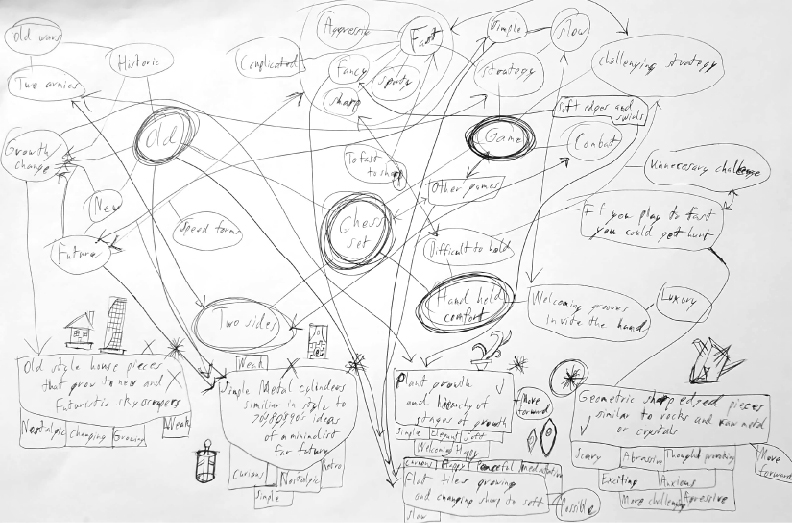 Old wars
Two armies
Historic
Growth
change
New
Future
Old
Complicated
Aggressive
Fancy
sharp
Spotty
Fast
Simple
slow
strategy
challenging strategy
Soft edges and
Game
Combat
To fast
to sharp
Other games
Unnecesary challenge
If you play to fast
you could get hurt
Chess
set
Speed forms
Difficult to hold
Hand held
comfort
Welcoming
Invite the hand
Luxury
Two sides
Old style house pieces
that grow into new and
Futuristic sky scrapers
Nostalgic
Changing
Growing
Weak
Weak
Simple Metal cylinders
similar in style to
ideas
of a minimalist
far future
Curious
Nostalgic
Retro
Simple
Plant growth
and hierarchy of
stages of growth
Simple
Elegant
Soft
Welcoming
Happy
Move
forward
Curious
Happy
Peaceful
Meditative
Flat tiles growing
and changing sharp to soft
Possible
Slow
Geometric sharp edged pieces
similar to rocks and raw metal
or crystals
Scary
Abrassive
Thought provoking
Exciting
Anxious
More challenging
Agressive
Move
forward